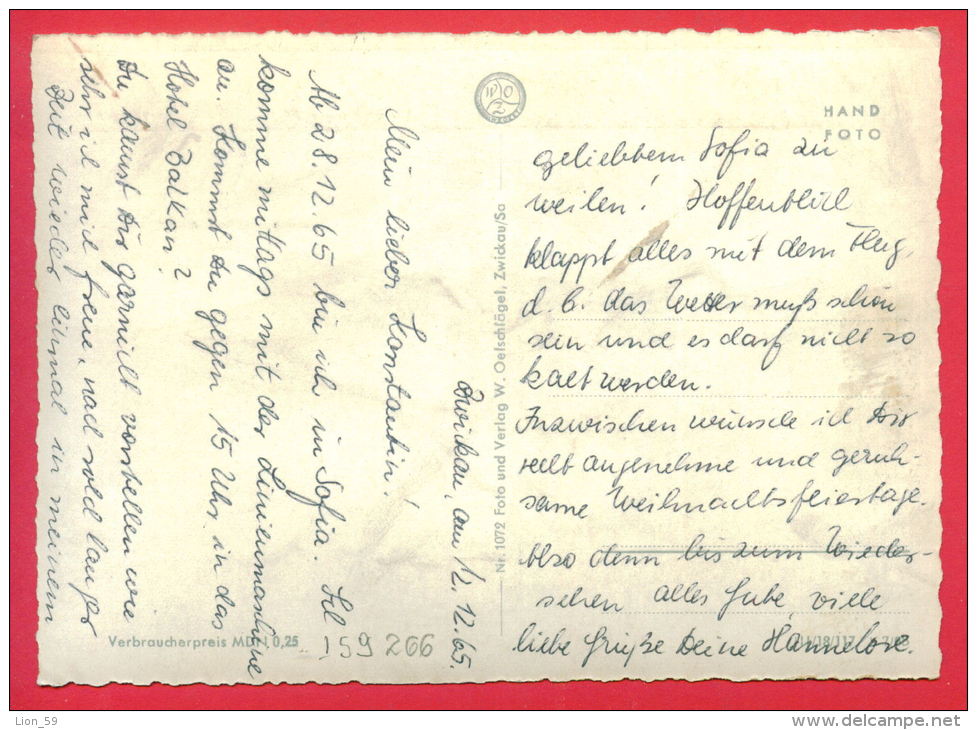 Zwickau, am 12.12.65.
Mein lieber Konstantin!
Ab 28.12.65 bin ich in Sofia. Ich
komme mittags mit der Linienmaschine
an. Kommst Du gegen 15 Uhr in das
Hotel Balkan?
Du kannst Dir garnicht vorstellen wie
sehr ich mich freue, nach solch langer
Zeit wieder einmal in meinem
geliebtem Sofia zu
weilen! Hoffentlich
klappt alles mit dem Flug,
d.h. das Wetter muß schön
sein und es darf nicht so
kalt werden.
Inzwischen wünsche ich Dir
recht angenehme und geruh-
same Weihnachtsfeiertage.
Also denn bis zum Wieder-
sehen alles Gute, viele
liebe Grüße Deine Hannelore.
HAND
FOTO
Nr. 1072 Foto und Verlag W. Oelschlägel, Zwickau/Sa
Verbraucherpreis MDN 0,25
159 266
Lion_59